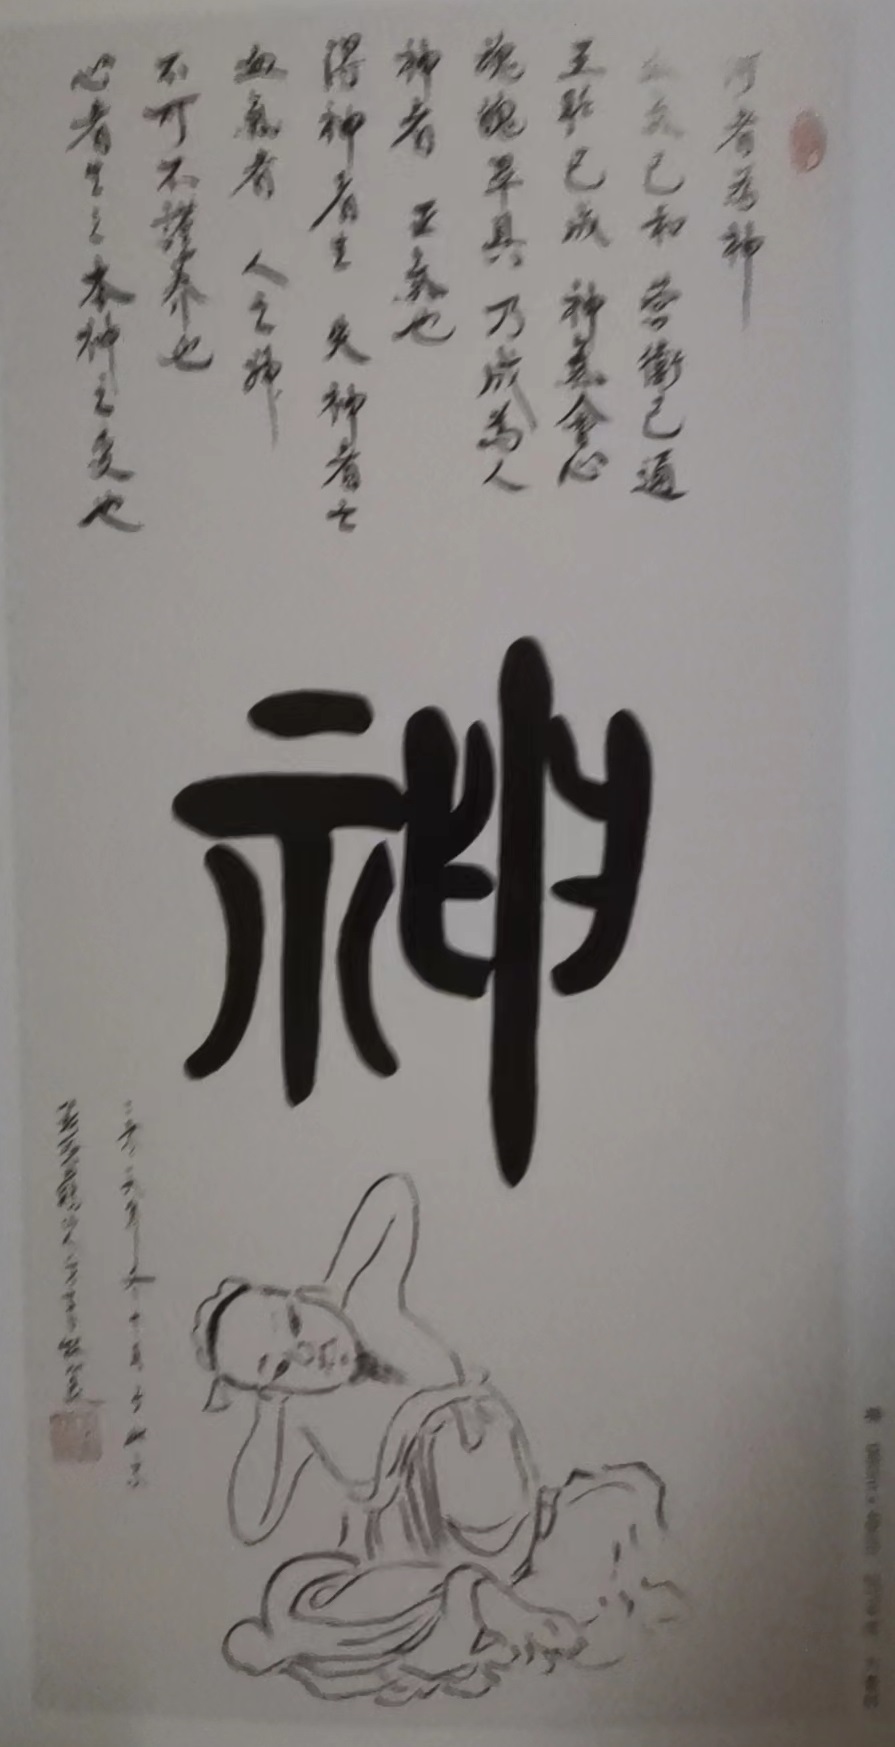 何者為神
血氣已和 營衛已通
五臟已成 神氣舍心
魂魄畢具 乃成為人
神者 正氣也
得神者生 失神者亡
血氣者 人之神
不可不謹养也
心者生之本神之变也
神